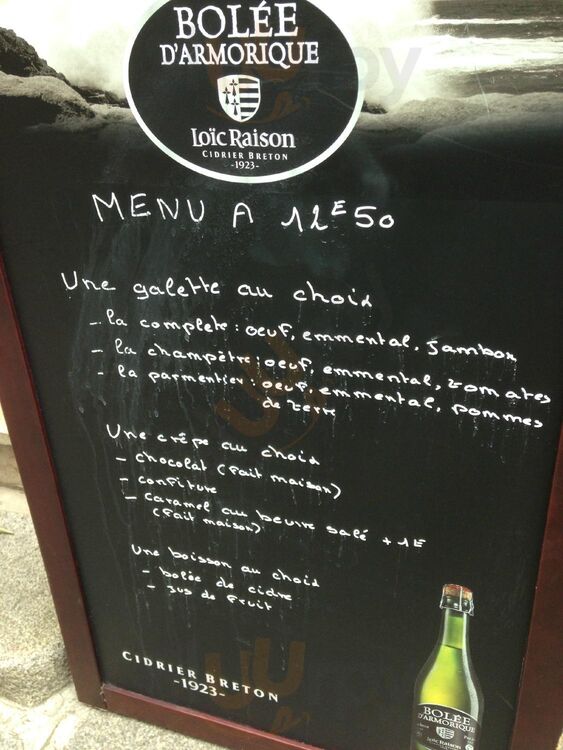 BOLÉE
D'ARMORIQUE
Loïc Raison
CIDRIER BRETON
-1923-
MENU A 12E50
Une galette au choix
- la complete : oeuf, emmental, jambon
- la champêtre : oeuf, emmental, tomates
- la parmentier : oeuf, emmental, pommes
de terre
Une crêpe au choix
- chocolat (fait maison)
- confiture
- caramel au beurre salé + 1E
(fait maison)
Une boisson au choix
- bolée de cidre
- jus de fruit
CIDRIER BRETON
-1923-
BOLÉE
D'ARMORIQUE
Loïc Raison